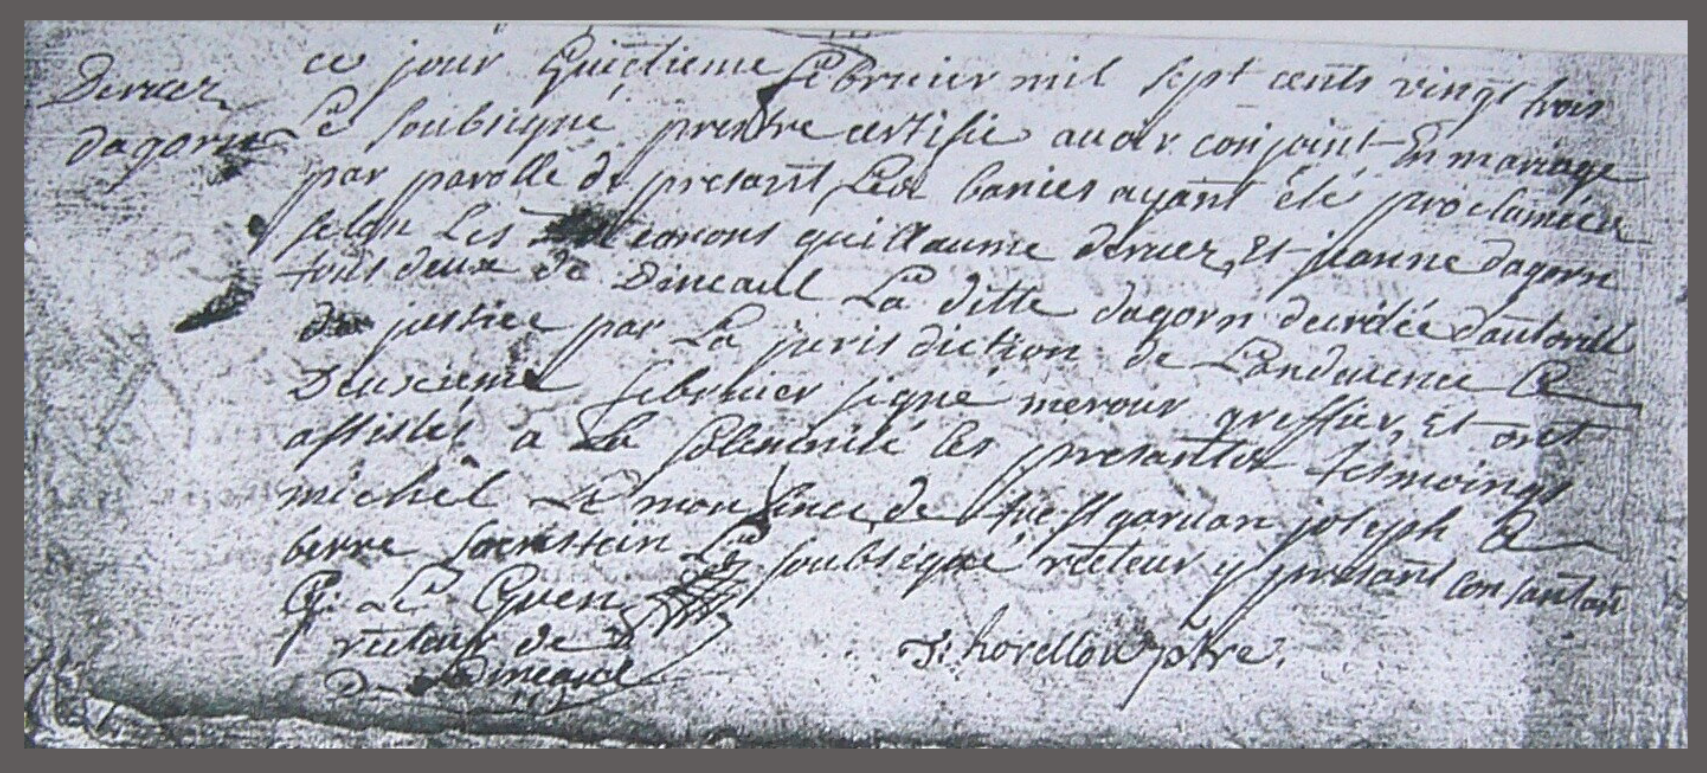 Derrier
dagorn
ce jour huictieme febvrier mil sept cents vingt trois
Le soubsigné prestre certifie avoir conjoint En mariage
par parolle de presant Les banies ayant été proclamées
selon Les canons guillaume derrier Et jeanne dagorn
tous deux de Dineaul La ditte dagorn decrétée d'autorité
de justice par La jurisdiction de Landevenec Le
Deuxieme febvrier signé merour greffier, Et ont
assistés a La solemnité les presantes tesmoings
michel Le de joseph Le
berre Le soubsigné recteur y presant consantant
Le Guen
recteur de
Dineaul
horellou ptre.